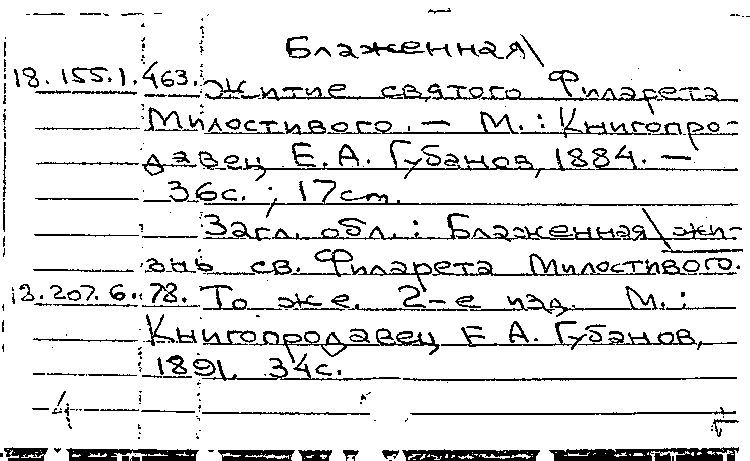 Блаженная\
18.155.1.463. Житие святого Филарета
Милостивого. — М.: Книгопро-
давец Е. А. Губанов, 1884. —
36с.; 17см.
Загл. обл.: Блаженная\жи-
знь св. Филарета Милостивого.
18.207.6.78. То же. 2-е изд. М.:
Книгопродавец Е А. Губанов,
1891. 34с.